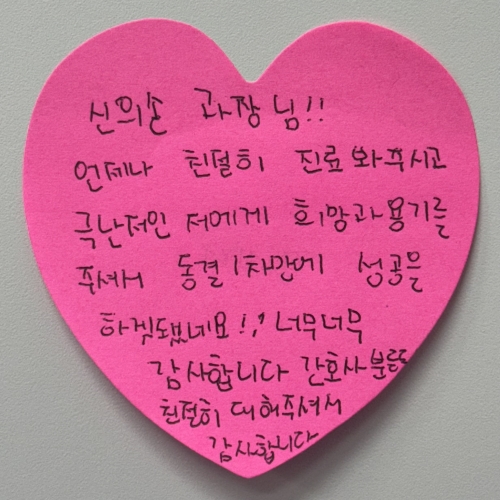 신의손 과장님!!
언제나 친절히 진료봐주시고
극난저인 저에게 희망과용기를
주셔서 동결 1차만에 성공을
하겟됐네요!,' 너무너무
감사합니다 간호사분들도
친절히 대해주셔서
감사합니다